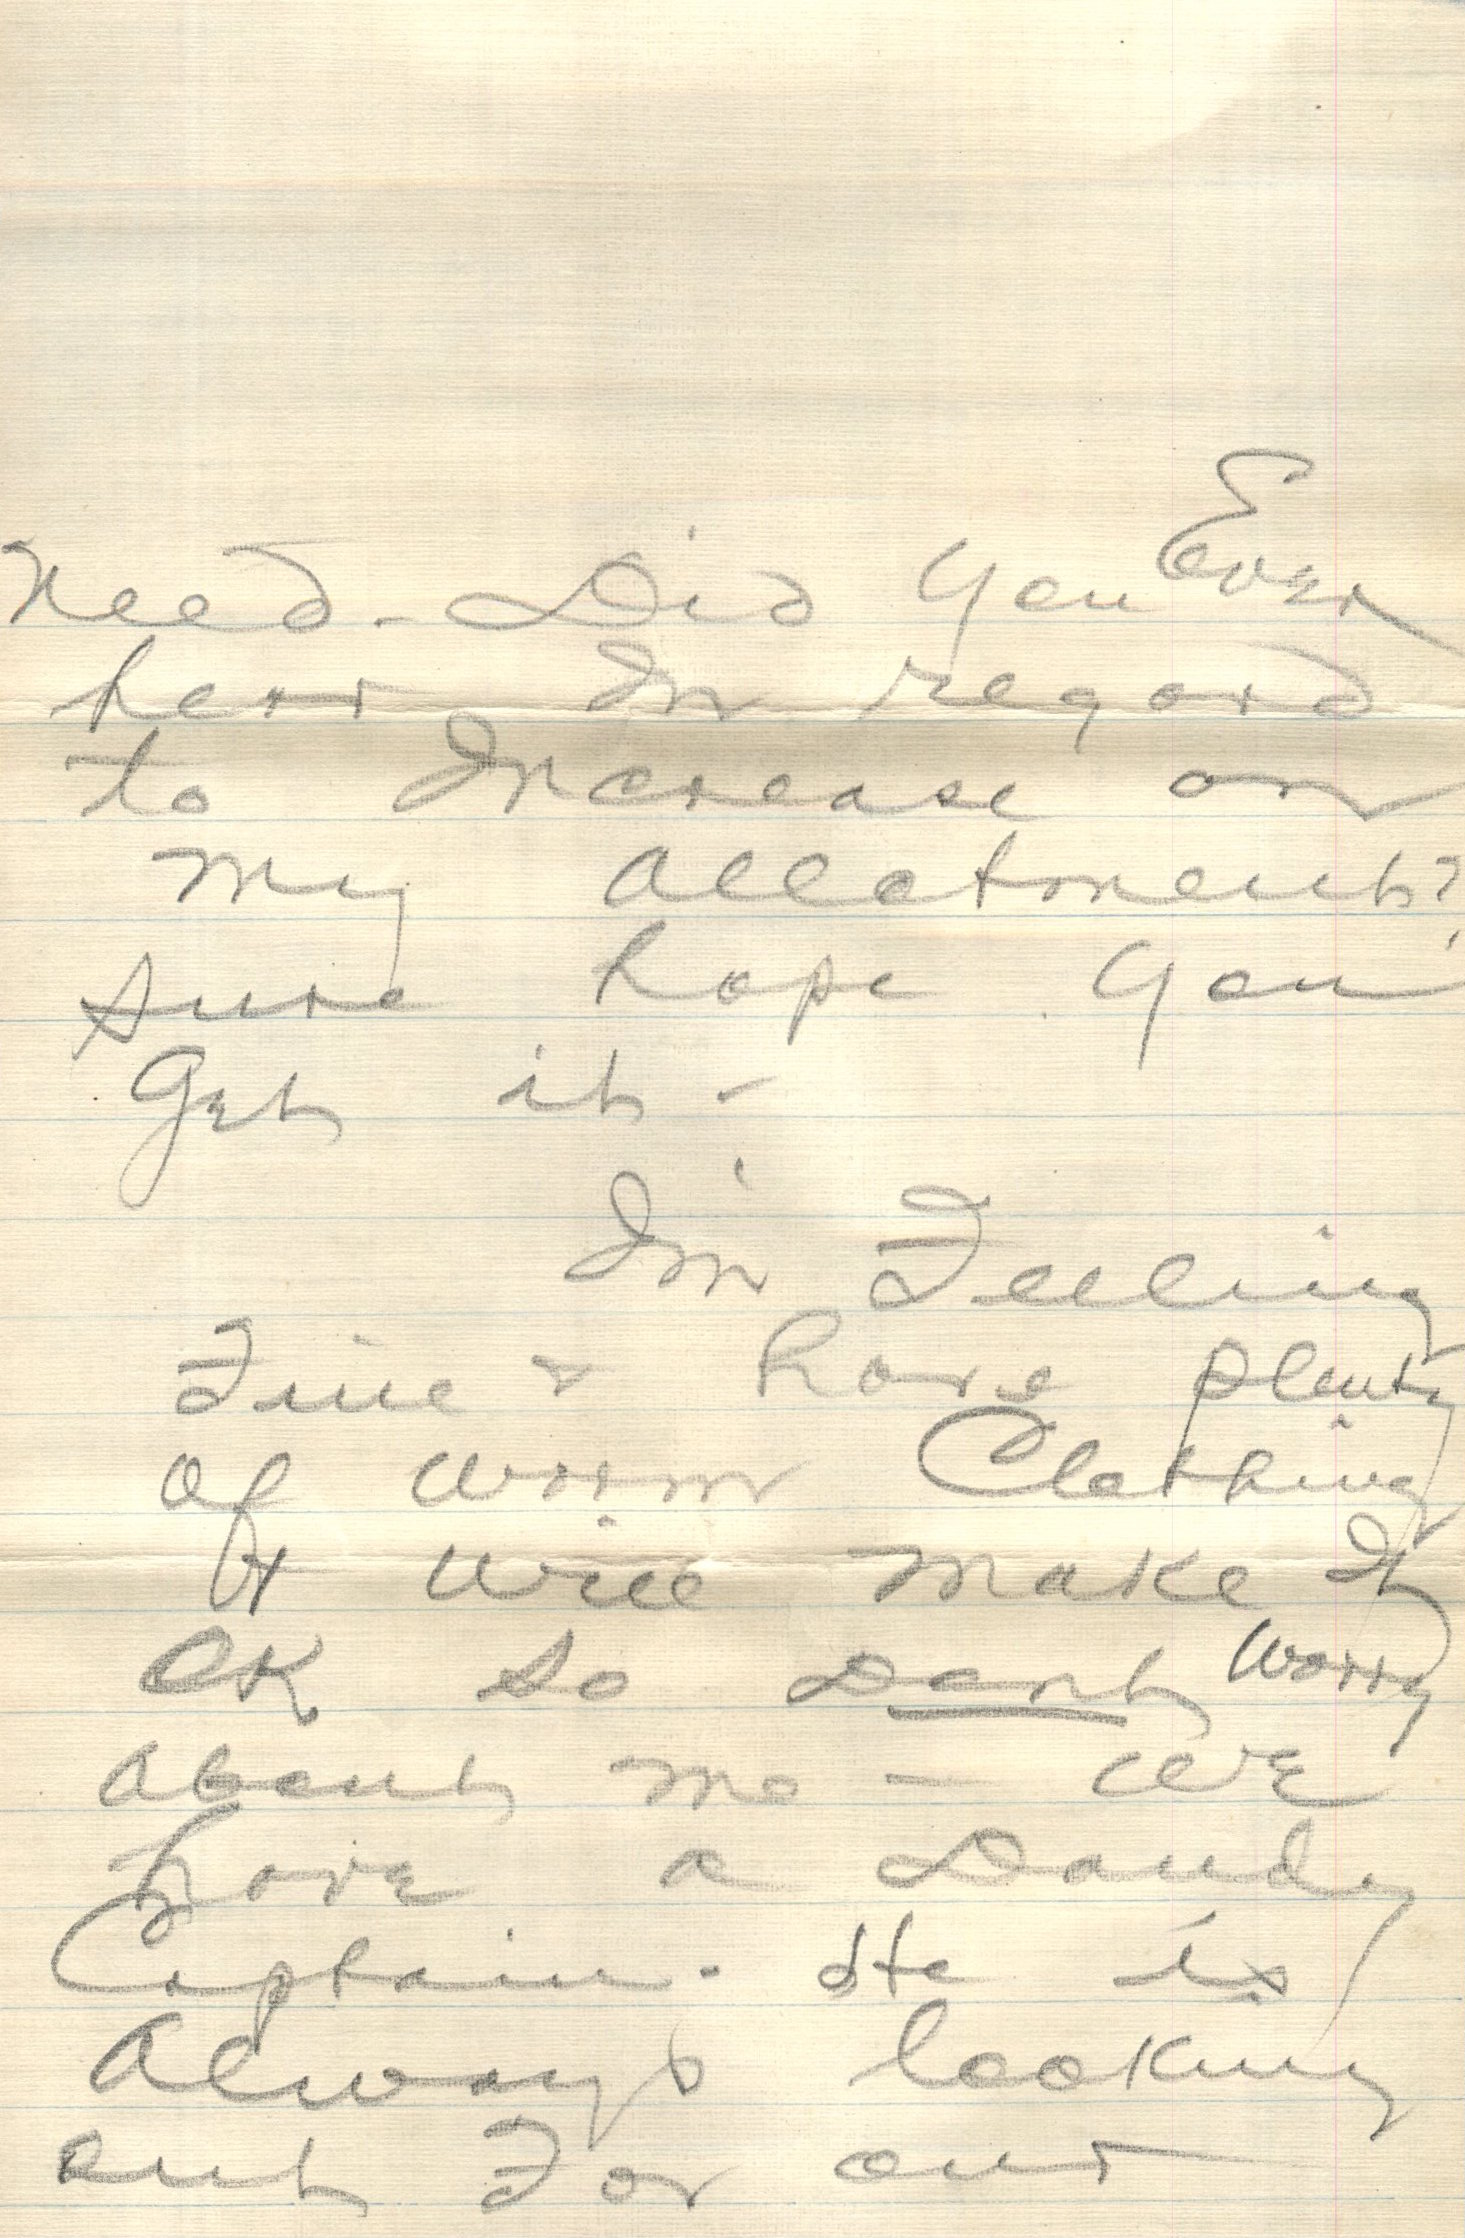 Need - Did you Ever
hear In regard
to Increase on
my allotment?
Sure hope you
Get it -
I'm Feeling
Fine & have plenty
of warm Clothing
& will make It
OK so Dont worry
about me - we
have a Dandy
Captain - He is
Always looking
out For our